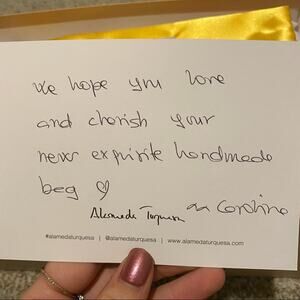 We hope you love
and cherish your
new exquisite handmade
bag ♡
Alameda Turquesa
xx Carolina
#alamedaturquesa | @alamedaturquesa | www.alamedaturquesa.com